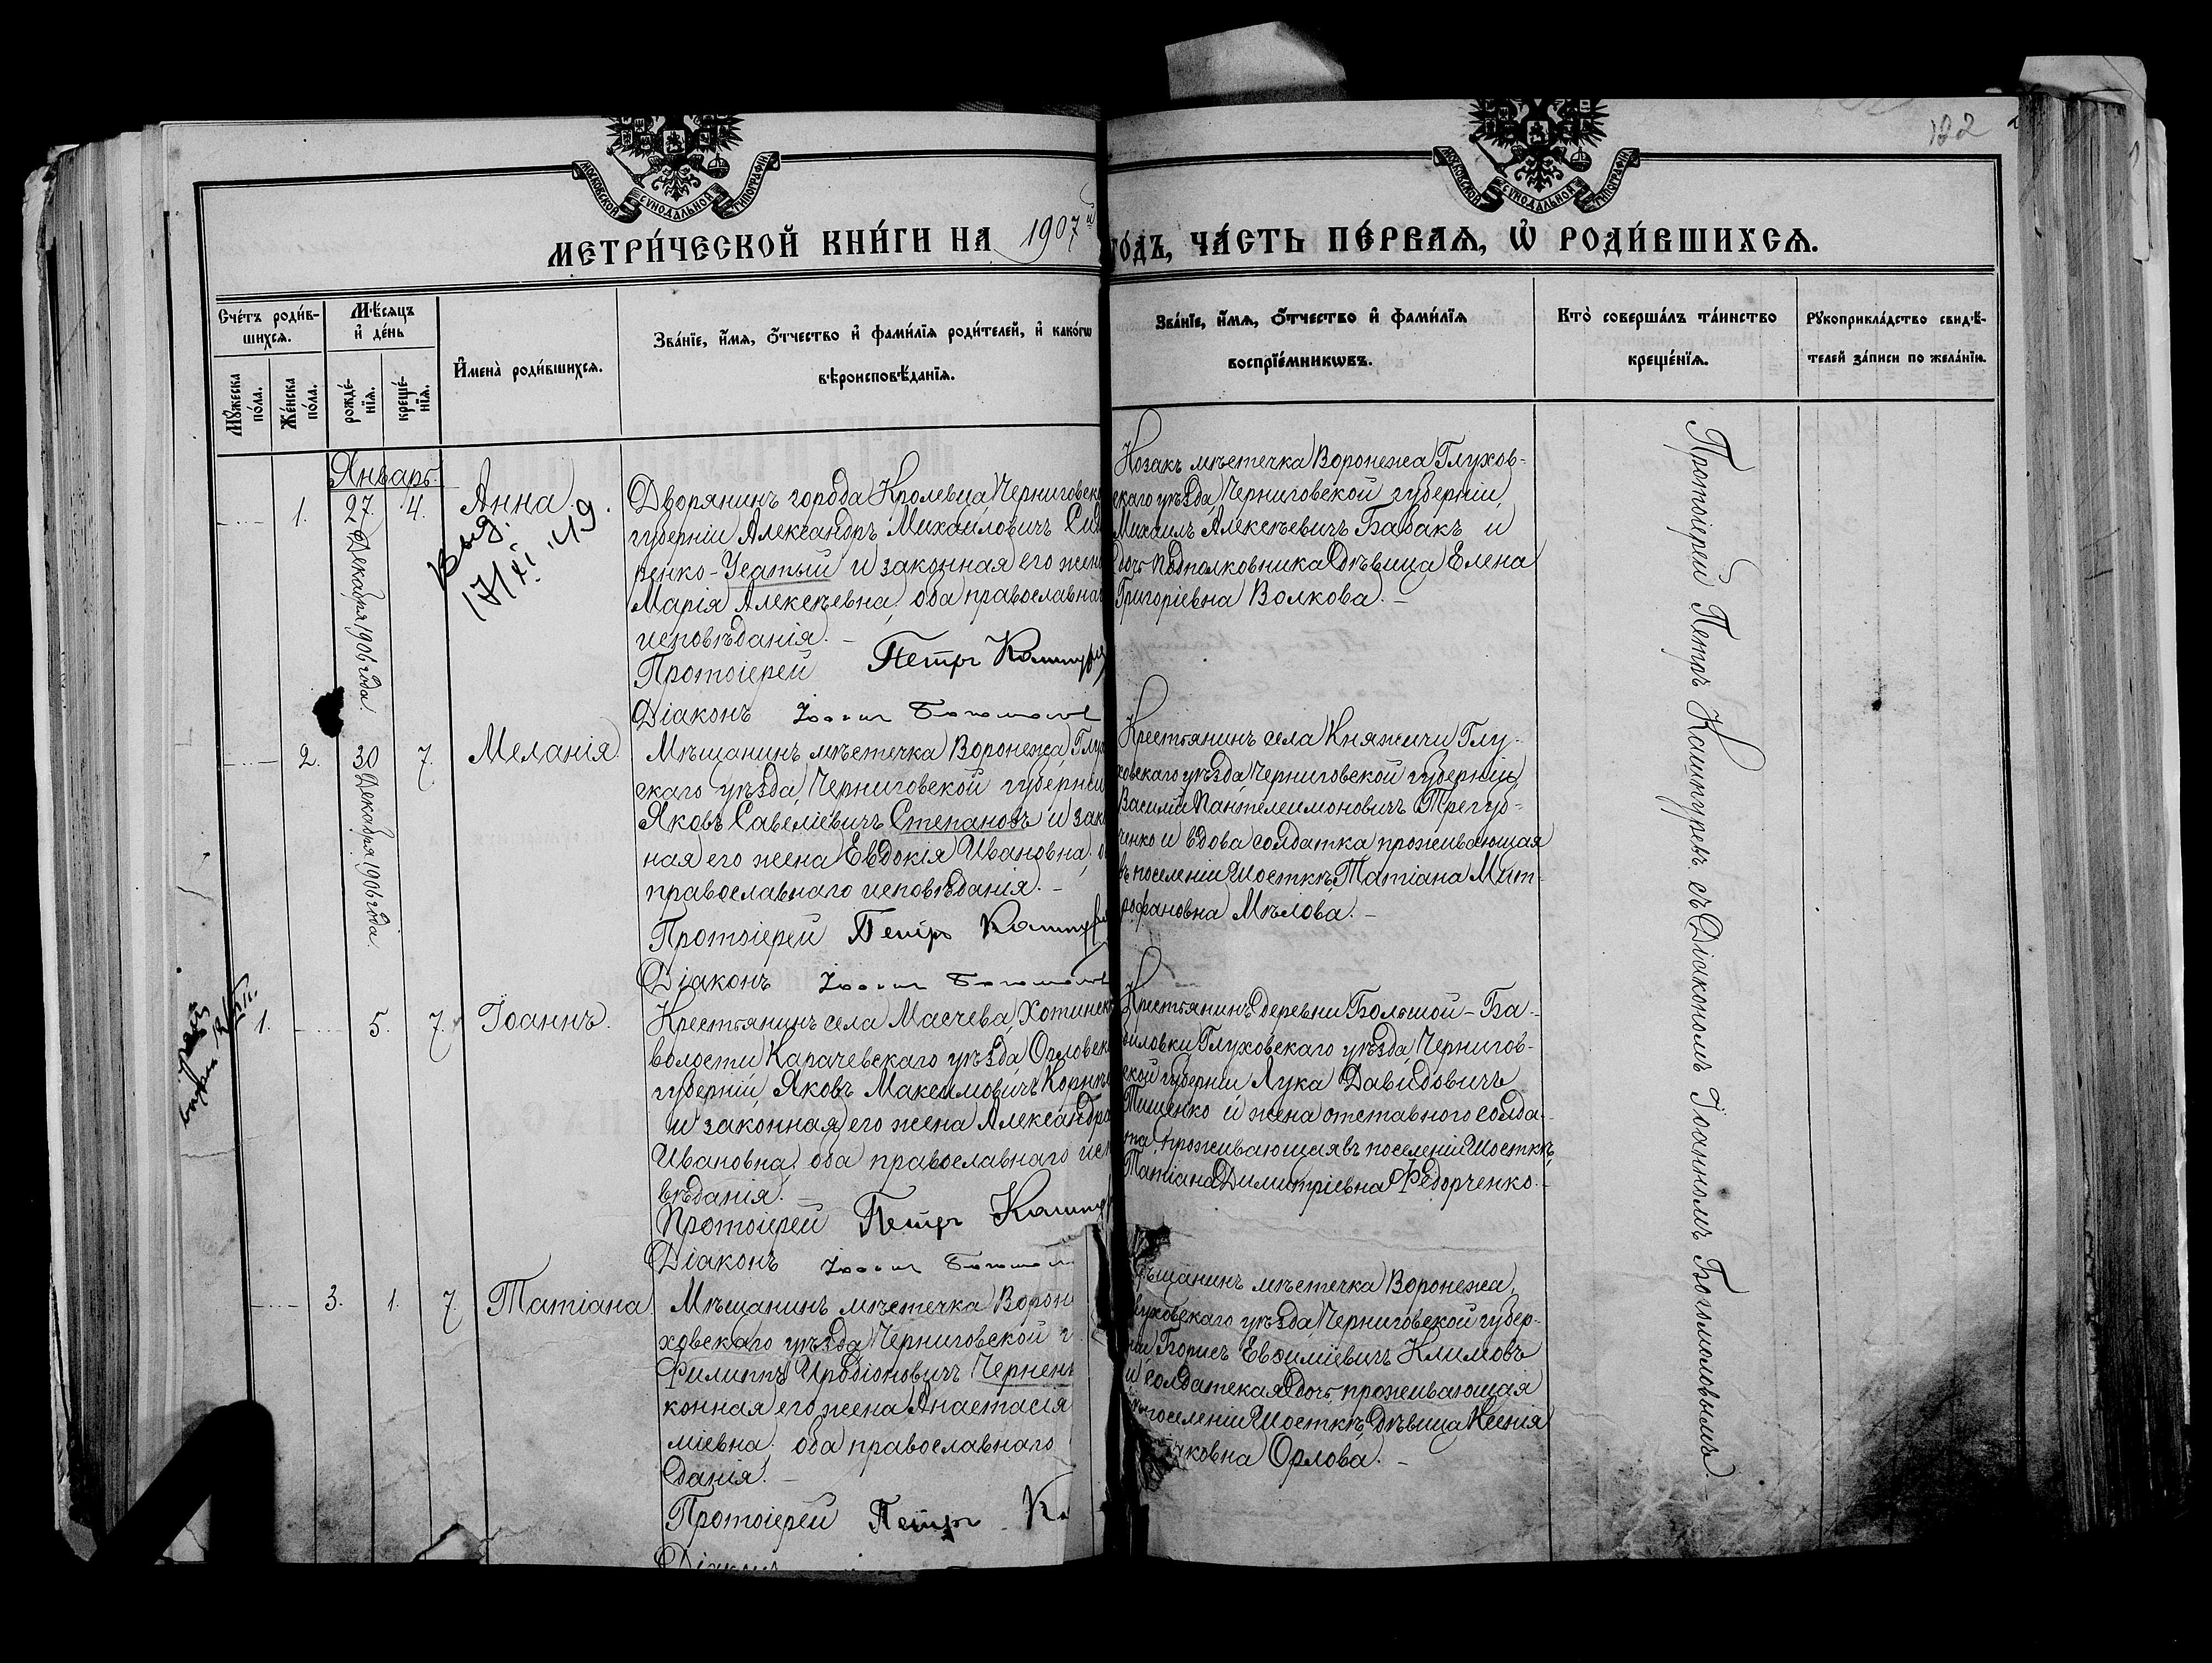 132
МОСКОВСКОЙ СѴНОДАЛЬНОЙ ТИПОГРАФІИ
МОСКОВСКОЙ СѴНОДАЛЬНОЙ ТИПОГРАФІИ
МЕТРИ́ЧЕСКОЙ КНИ́ГИ НА 1907й
ГО́ДЪ, ЧА́СТЬ ПЕ́РВАЯ, Ѡ҆ РОДИ́ВШИХСЯ.
Сче́тъ роди́в-
шихся.
Мꙋ́жеска
по́ла.
Же́нска
по́ла.
Мѣ́сяцъ
и҆ де́нь
рожде́-
нїя.
креще́-
нїя.
И҆мена̀ роди́вшихся.
Зва́нїе, и҆́мя, ѻ҆́тчество и҆ фами́лїя роди́телей, и҆ како́гѡ
вѣроисповѣ́данїя.
Зва́нїе, и҆́мя, ѻ҆́тчество и҆ фами́лїя
воспрїе́мникѡвъ.
Кто̀ соверша́лъ та́инство
креще́нїя.
Рꙋкоприкла́дство свидѣ́-
телей за́писи по жела́нїю.
Январь.
1.
27 Декабря 1906 года.
4.
Анна.
Выд.
17/XI 49.
Дворянинъ города Кролевца Черниговск
губерніи Александръ Михаиловичъ
ренко-Усатый и законная его жен
Марія Алексѣевна, оба православна
исповѣданія. –
Протоіерей Петръ
Діаконъ Іоаннъ
Козакъ мѣстечка Воронежа Глухов-
скаго уѣзда Черниговской губерніи,
Михаилъ Алексѣевичъ Бабакъ и
дочь Подполковника дѣвица Елена
Григоріевна Волкова. –
2.
30 Декабря 1906 года
7.
Меланія.
Мѣщанинъ мѣстечка Воронежа Глух
скаго уѣзда Черниговской губерніи
Яковъ Савеліевичъ Степановъ и зак
ная его жена Евдокія Ивановна, о
православнаго исповѣданія. –
Протоіерей Петръ
Діаконъ Іоаннъ
Крестьянинъ села Княжичи Глу-
ховскаго уѣзда Черниговской губерніи
Василій Пантелеимоновичъ Трегуб-
ченко и вдова солдатка проживающая
въ поселеніи Шосткѣ Татіана Мит-
рофановна Мѣлова. –
1.
5.
7.
Іоаннъ.
Крестьянинъ села Маечева, Хотинск
волости Карачевскаго уѣзда Орловск
губерніи, Яковъ Максимовичъ
и законная его жена Александра
Ивановна, оба православнаго исп
вѣданія. –
Протоіерей Петръ
Діаконъ Іоаннъ
Крестьянинъ деревни Большой-
Глуховскаго уѣзда Чернигов-
ской губерніи Лука Давидовичъ
Тищенко и жена отставного солда-
та проживающая въ поселеніи Шосткѣ
Татіана Димитріевна Федорченко. –
3.
1.
7.
Татіана
Мѣщанинъ мѣстечка Ворон
ховскаго уѣзда Черниговской г
Филиппъ Иродіоновичъ Чернен
конная его жена Анастасія
міевна, оба православнаго
данія. –
Протоіерей Петръ
Діаконъ
ѣщанинъ мѣстечка Воронежа,
луховскаго уѣзда Черниговской губер-
ніи Борисъ Евѳиміевичъ Климовъ
и солдатская дочь, проживающая
поселеніи Шосткѣ, дѣвица Ксенія
ковна Орлова. –
Протоіерей Петръ Кашпуревъ съ Діакономъ Іоанномъ Богомоловымъ. –